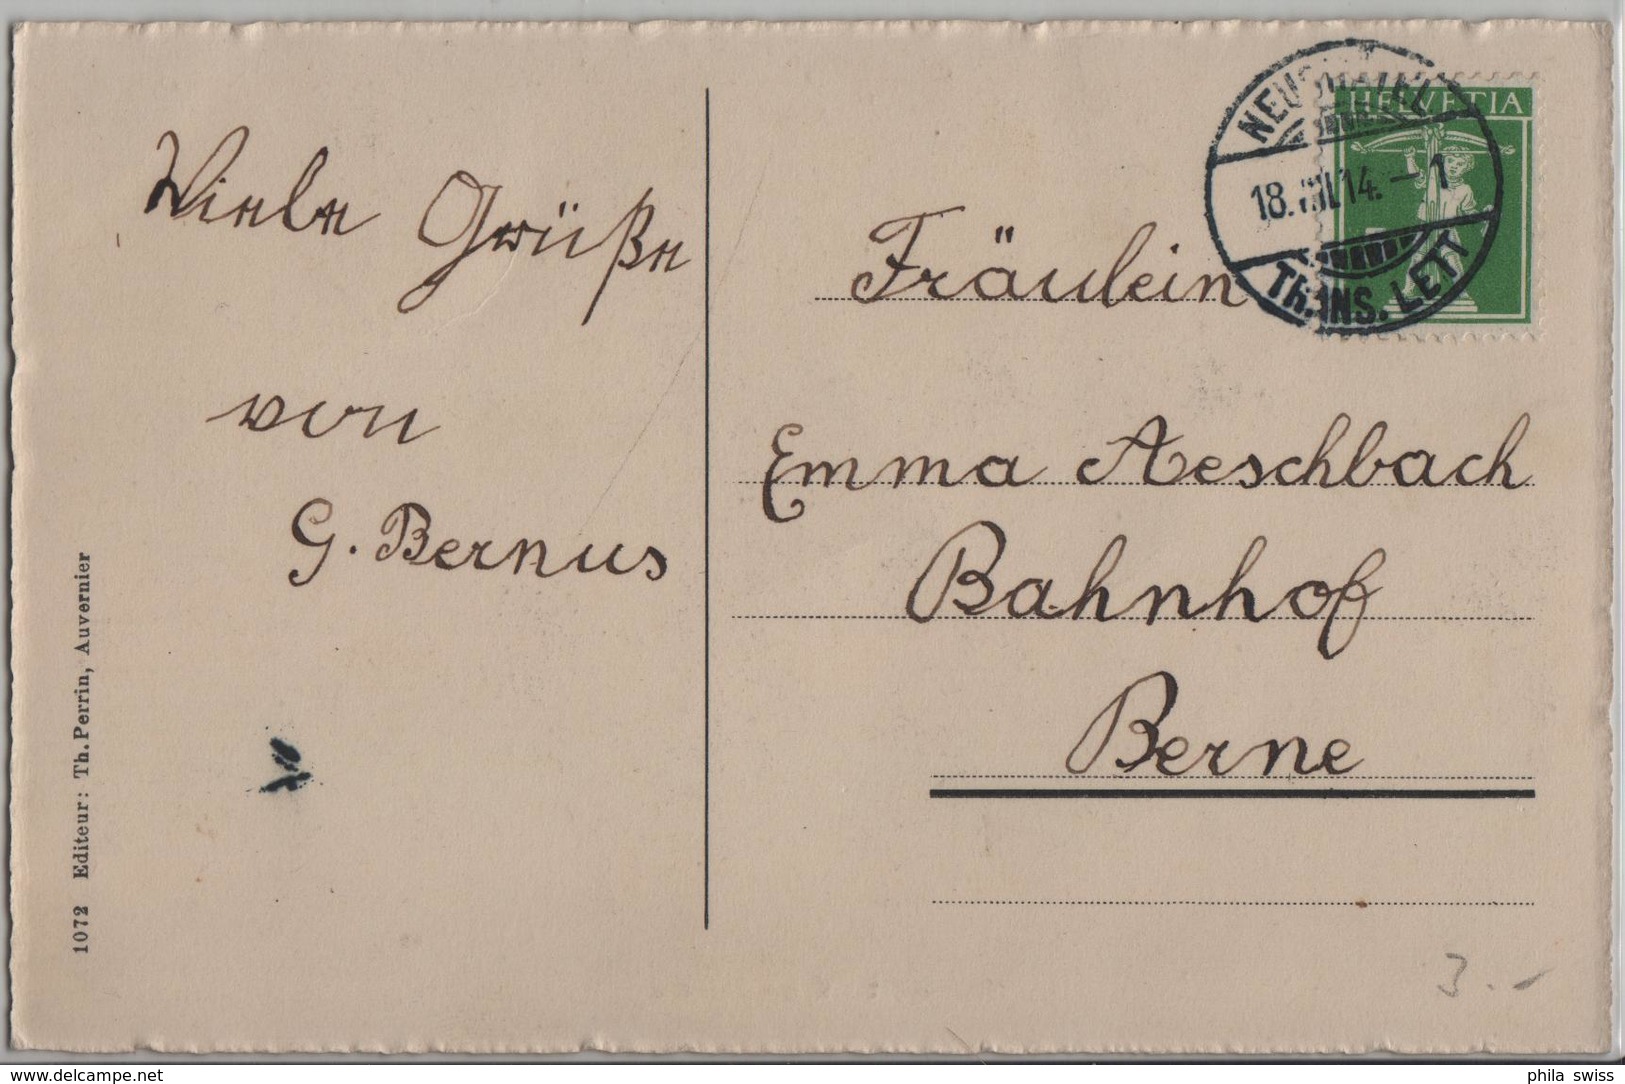 Viele Grüße
von
G. Bernus
1072 Editeur: Th. Perrin, Auvernier
HELVETIA
NEUCHATEL
18. VIII. 14. – 1
TRANS. LETT
Fräulein
Emma Aeschbach
Bahnhof
Berne
3.-
delcampe.net
phila swiss